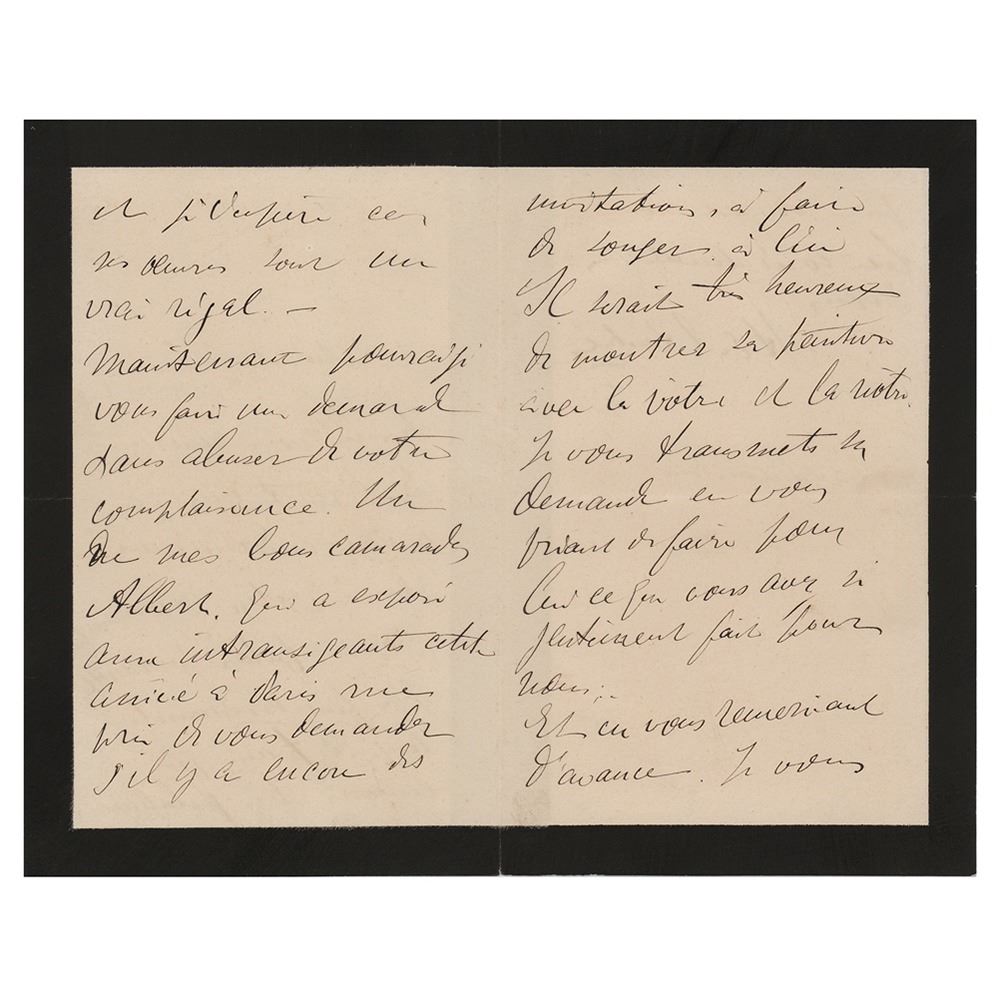 et je l'espère car
ses œuvres sont un
vrai régal. —
Maintenant pourrai je
vous faire une demande
sans abuser de votre
complaisance. Un
de mes bons camarades
Albert, qui a exposé
aux intransigeants cette
année à Paris me
prie de vous demander
s'il y a encore des
invitations, à faire
de songer à lui
Il serait très heureux
de montrer sa peinture
avec la vôtre et la nôtre.
Je vous transmets sa
demande en vous
priant de faire pour
lui ce que vous avez si
gentiment fait pour
nous.
Et en vous remerciant
d'avance. Je vous